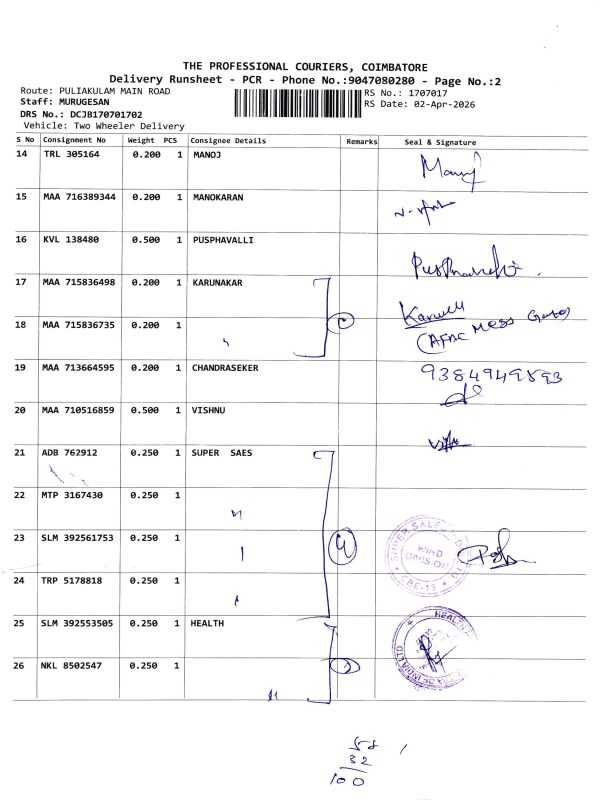 THE PROFESSIONAL COURIERS, COIMBATORE
Delivery Runsheet - PCR - Phone No.:9047080280 - Page No.:2
Route: PULIAKULAM MAIN ROAD
Staff: MURUGESAN
DRS No.: DCJB170701702
Vehicle: Two Wheeler Delivery
RS No.: 1707017
RS Date: 02-Apr-2026
S No Consignment No Weight PCS Consignee Details Remarks Seal & Signature
14 TRL 305164 0.200 1 MANOJ
15 MAA 716389344 0.200 1 MANOKARAN
16 KVL 138480 0.500 1 PUSPHAVALLI
17 MAA 715836498 0.200 1 KARUNAKAR
18 MAA 715836735 0.200 1
(AFAC MESS Gate)
19 MAA 713664595 0.200 1 CHANDRASEKER 9384949893
20 MAA 710516859 0.500 1 VISHNU
21 ADB 762912 0.250 1 SUPER SAES
22 MTP 3167430 0.250 1
23 SLM 392561753 0.250 1 4
WIND
DIVISION
CBE-18
24 TRP 5178818 0.250 1
25 SLM 392553505 0.250 1 HEALTH
26 NKL 8502547 0.250 1
58
32
100